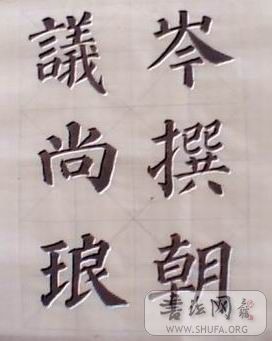 岑撰朝
議尚琅
書法网
WWW.SHUFA.ORG